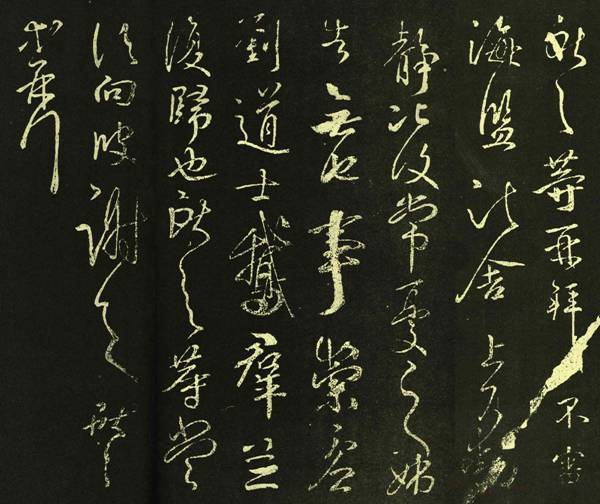 獻之等再拜不審
海鹽諸舍上下動
靜比復常憂之姊
告無它事崇虛
劉道士鵝群並
復歸也獻之等當
須向彼謝之獻之
等再拜